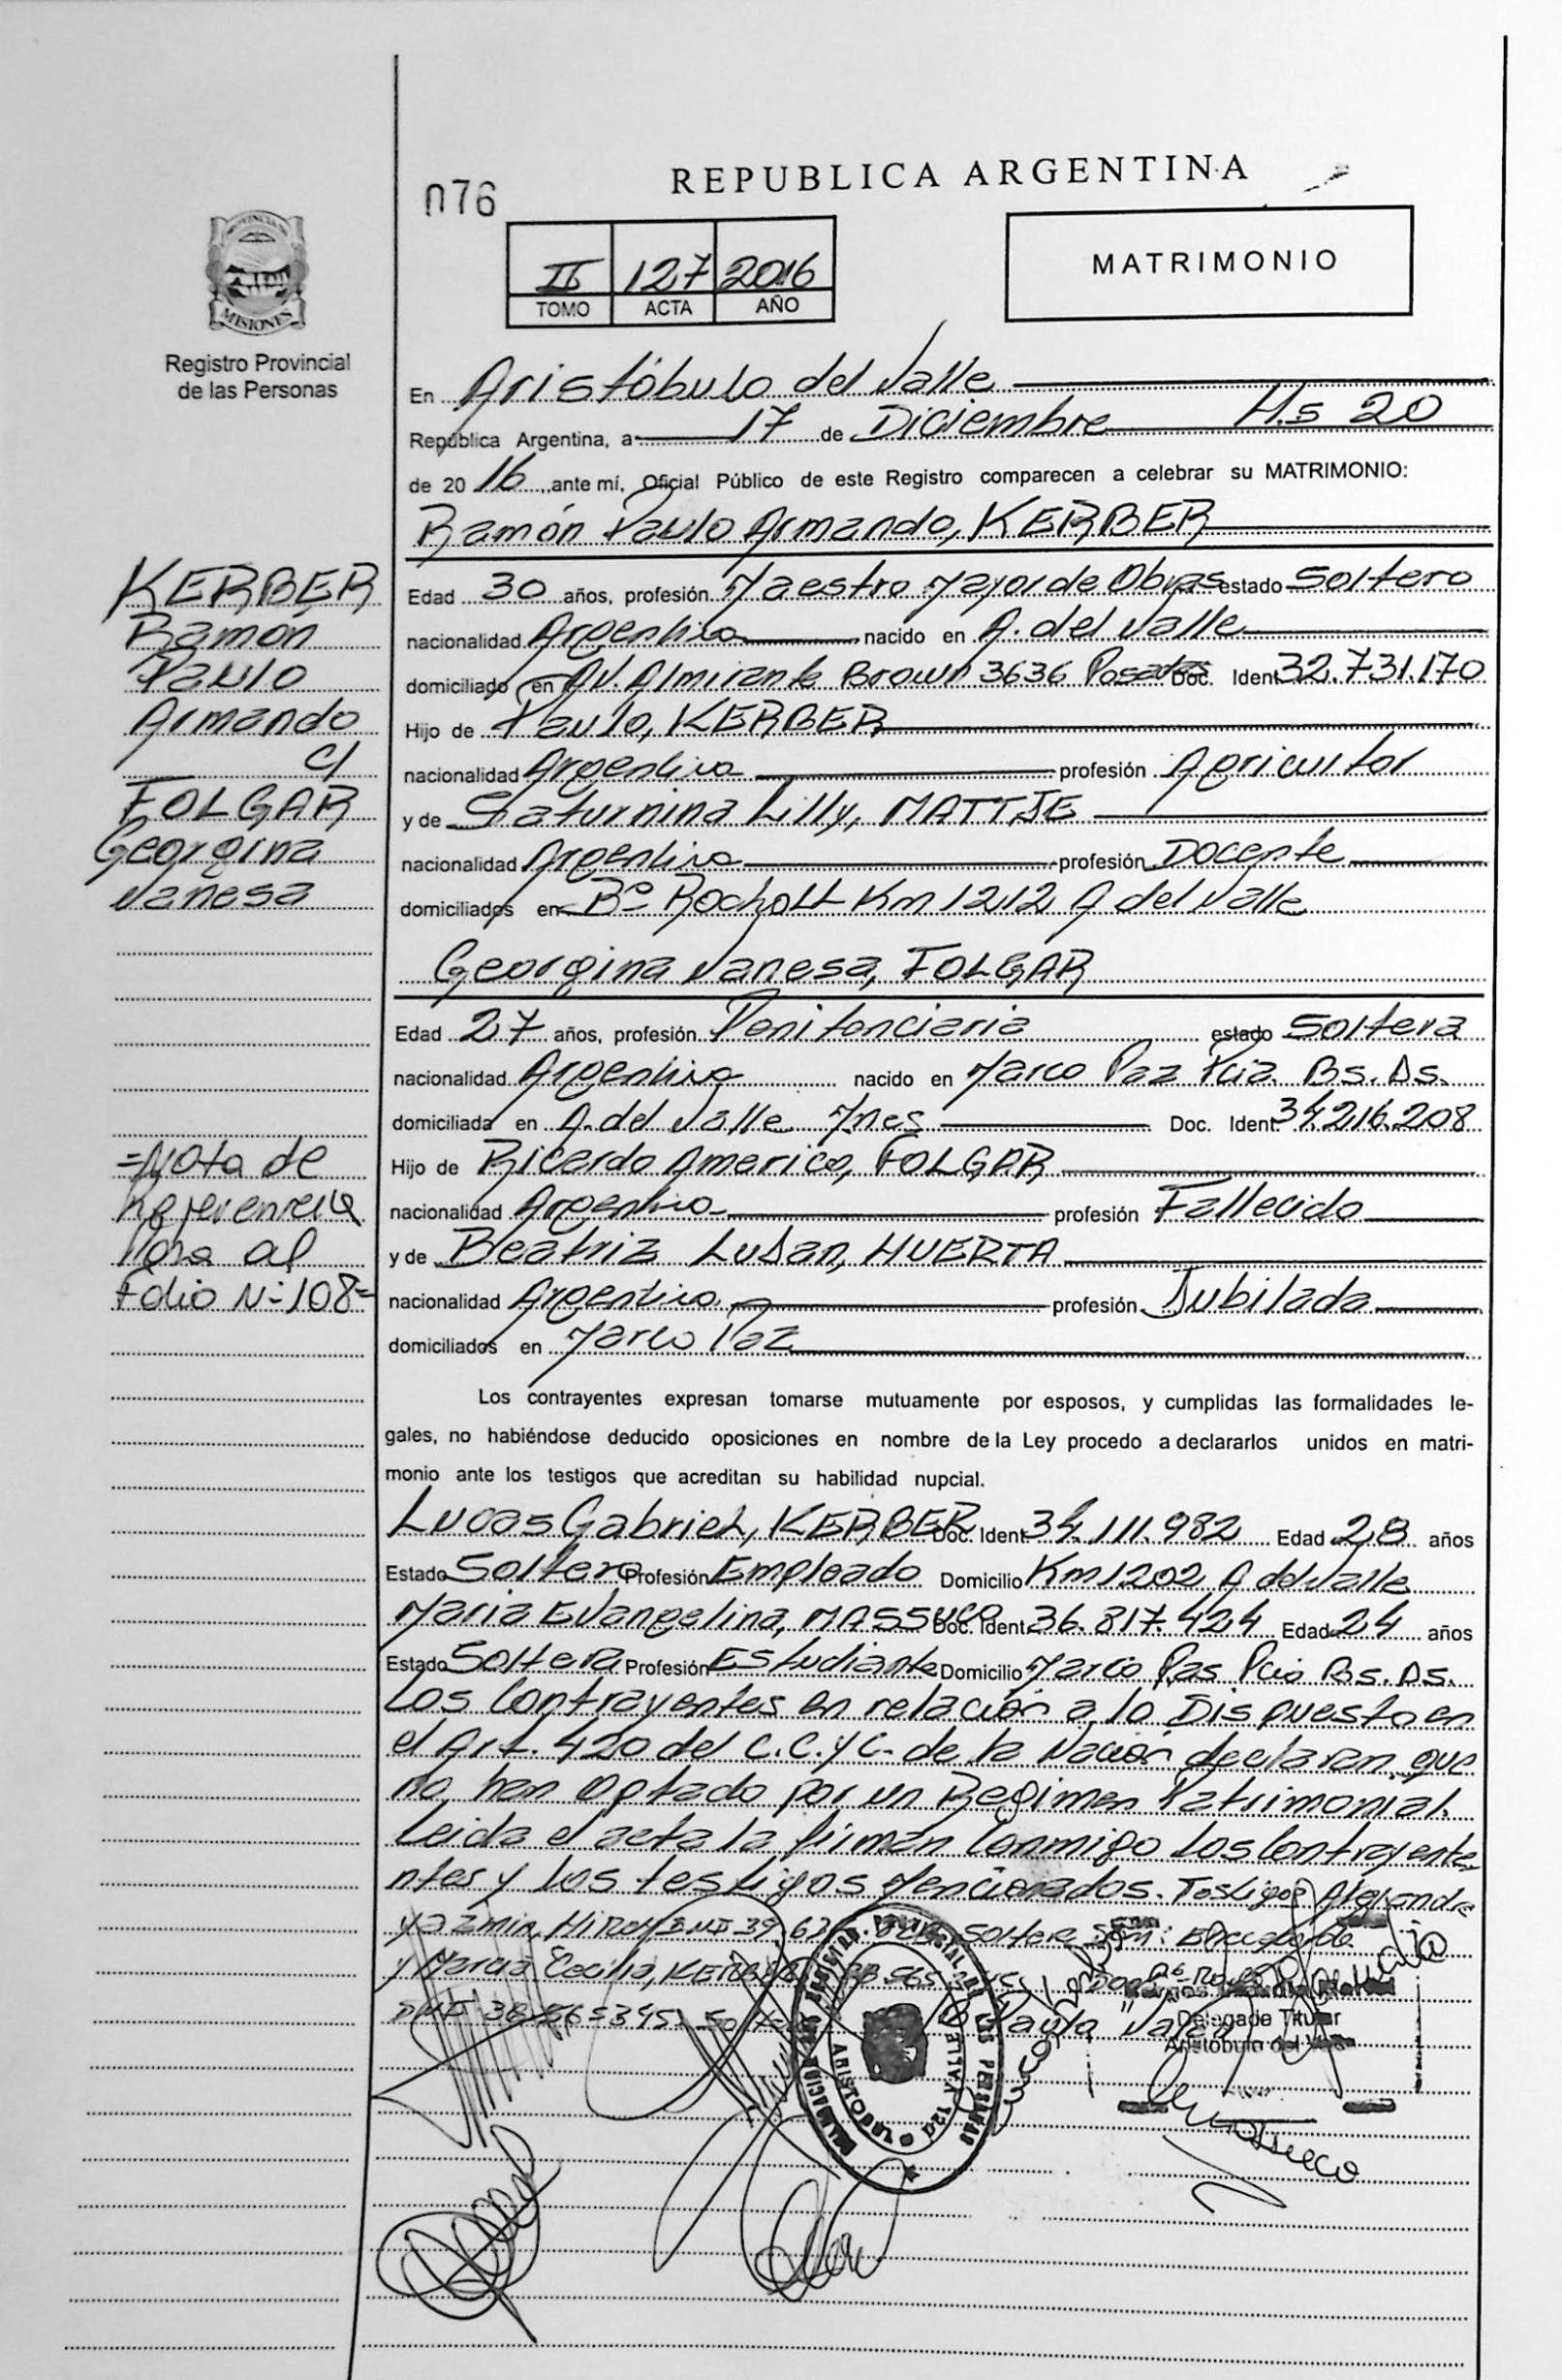 REPUBLICA ARGENTINA
076
II 127 2016
TOMO ACTA AÑO
MATRIMONIO
MISIONES
Registro Provincial
de las Personas
En Aristóbulo del Valle
República Argentina, a 17 de Diciembre Hs 20
de 20 16 ante mí, Oficial Público de este Registro comparecen a celebrar su MATRIMONIO:
Ramón Paulo Armando, KERBER
KERBER
Ramón
Paulo
Armando
c/
FOLGAR
Georgina
Vanesa
Edad 30 años, profesión Maestro Mayor de Obras estado Soltero
nacionalidad Argentina nacido en A. del Valle
domiciliado en Av. Almirante Brown 3636 Posadas Doc. Ident 32.731.170
Hijo de Paulo, KERBER
nacionalidad Argentina profesión Agricultor
y de Saturnina Lilly, MATTJE
nacionalidad Argentina profesión Docente
domiciliados en Bº Rocholl Km 1212 A del Valle
Georgina Vanesa, FOLGAR
Edad 27 años, profesión Penitenciaria estado Soltera
nacionalidad Argentina nacido en Marco Paz Pcia. Bs. As.
domiciliada en A. del Valle Mnes Doc. Ident. 34.216.208
Hijo de Ricardo Americo, FOLGAR
nacionalidad Argentina profesión Fallecido
y de Beatriz Lujan, HUERTA
nacionalidad Argentina profesión Jubilada
domiciliados en Marco Paz
=Nota de
Referencia
Pasa al
Folio Nº 108=
Los contrayentes expresan tomarse mutuamente por esposos, y cumplidas las formalidades le-
gales, no habiéndose deducido oposiciones en nombre de la Ley procedo a declararlos unidos en matri-
monio ante los testigos que acreditan su habilidad nupcial.
Lucas Gabriel, KERBER Doc. Ident 34.111.982 Edad 28 años
Estado Soltero Profesión Empleado Domicilio Km 1202 A del Valle
Maria Evangelina, MASSUCO Doc. Ident 36.817.424 Edad 24 años
Estado Soltera Profesión Estudiante Domicilio Marco Pas Pcia Bs. As.
Los Contrayentes en relación a lo Dispuesto en
el Art. 420 del C.C.y C. de la Nación declaran que
no han optado por un Regimen Patrimonial.
Leida el acta la firman conmigo los Contrayente
ntes y los testigos Mencionados. Testigos Alejandra
Yazmin, Soltera
y Marcia Cecilia, KERBER
DNI
Delegada Titular
Aristóbulo del Valle